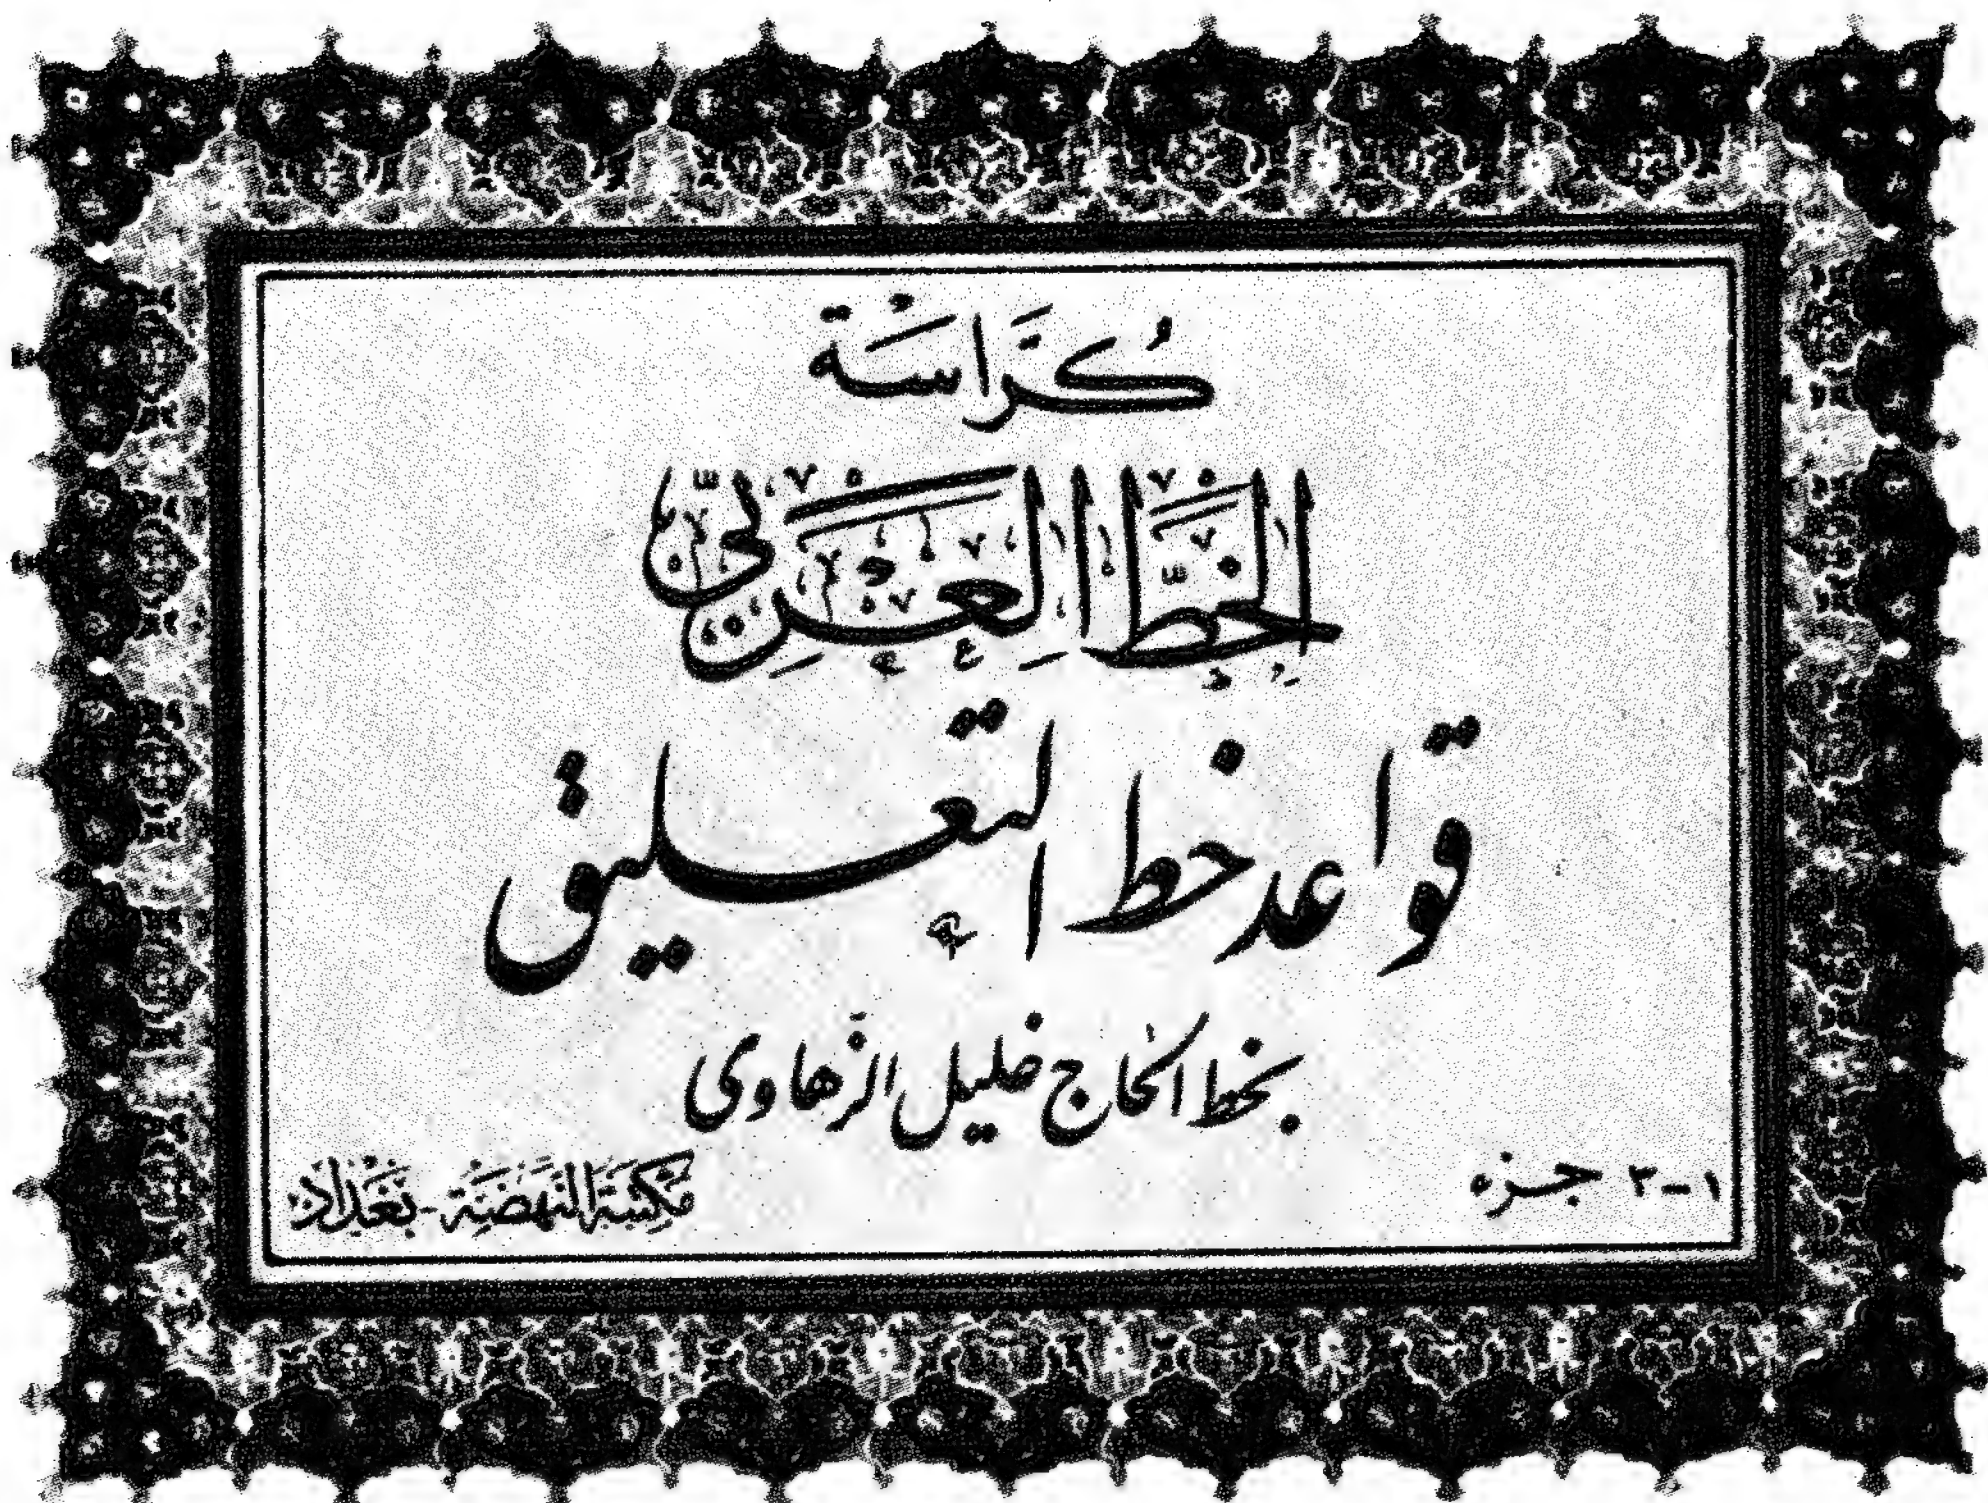 كُرَّاسَة
الخط العربي
قواعد خط التعليق
بخط الحاج خليل الزهاوى
١-٣ جزء
مكتبة النهضة - بغداد